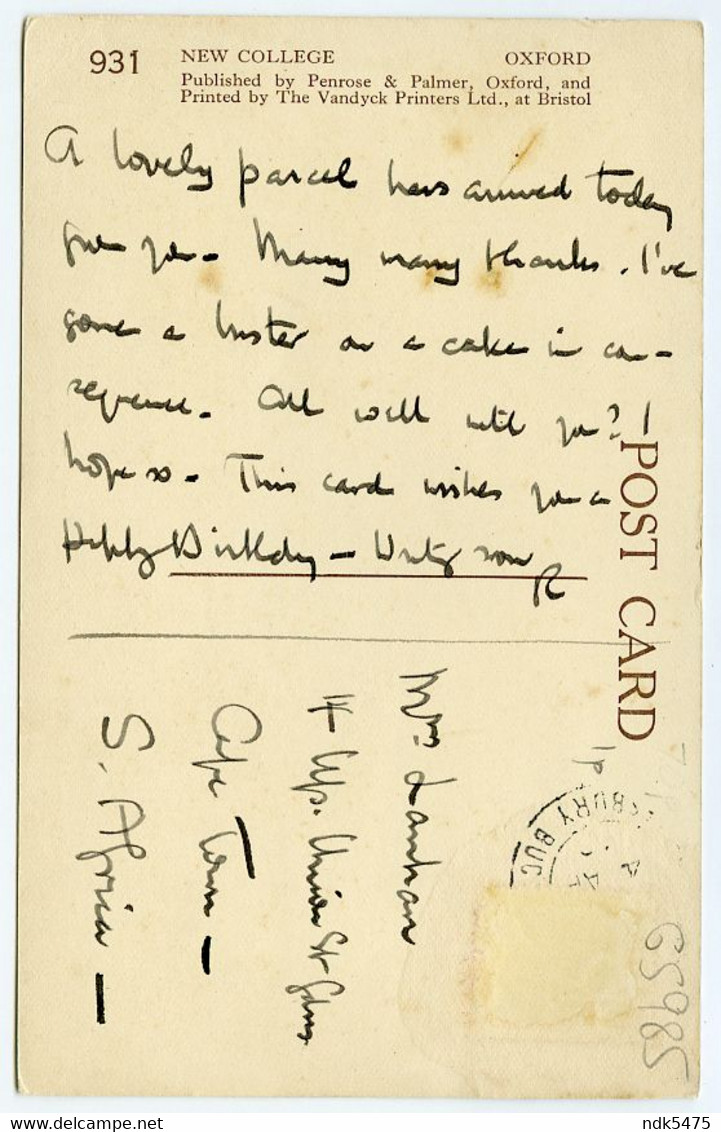 931
NEW COLLEGE OXFORD
Published by Penrose & Palmer, Oxford, and
Printed by The Vandyck Printers Ltd., at Bristol
A lovely parcel has arrived today
from you - Many many thanks. I've
gone a buster on a cake in con-
sequence. All well with you? I
hope so - This card wishes you a
Happy Birthday -
R
POST CARD
Mrs Lanhan
4 Up. Union St Gdns
Cape Town -
S. Africa -
BURY BUC
65985
ndk5475